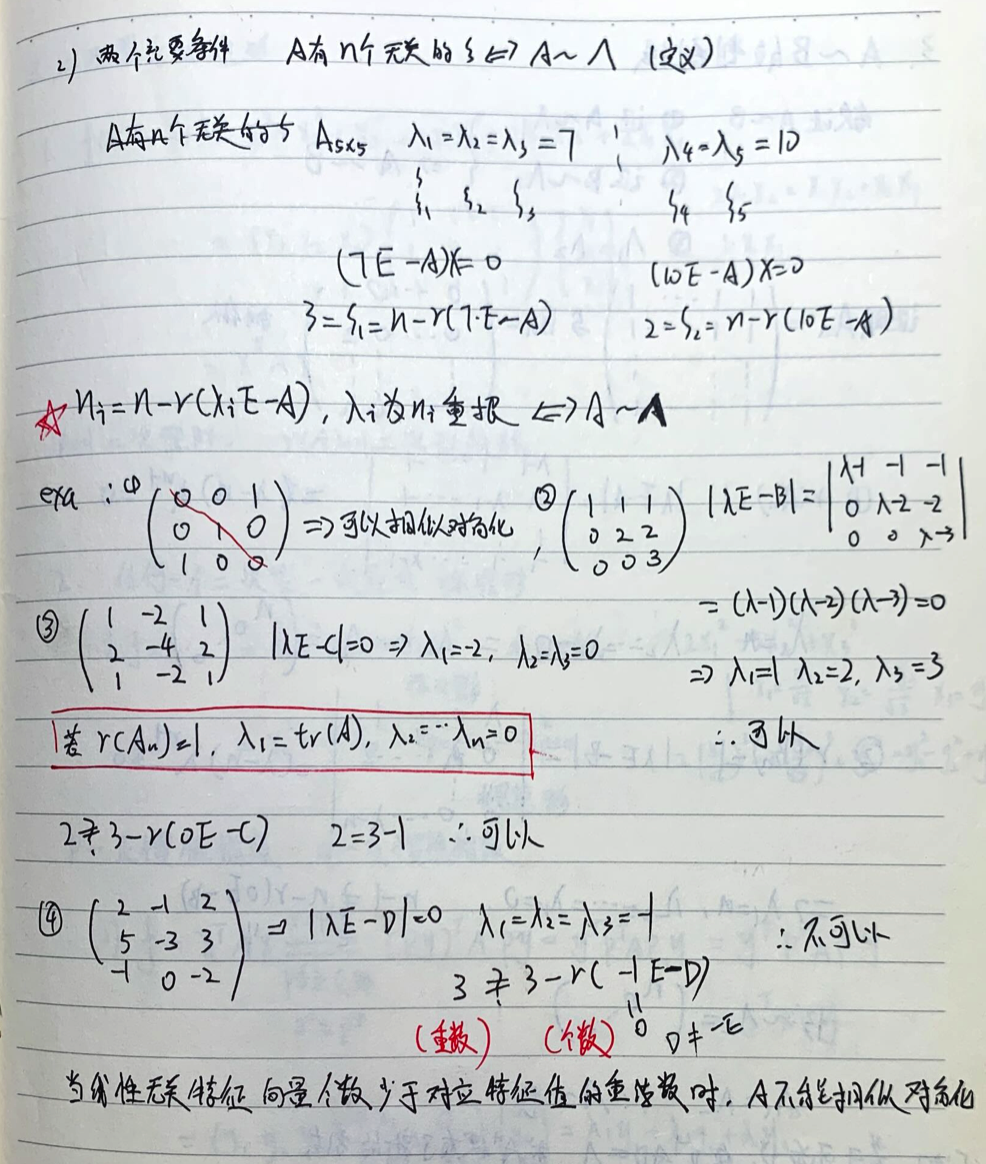 2) 两个充要条件 A有n个无关的ξ⇔A~Λ (定义)
A有n个无关的ξ A₅ₓ₅ λ₁=λ₂=λ₃=7 ; λ₄=λ₅=10
ξ₁ ξ₂ ξ₃ ξ₄ ξ₅
(7E-A)X=0 (10E-A)X=0
3=S₁=n-r(7·E-A) 2=S₂=n-r(10E-A)
☆ nᵢ=n-r(λᵢE-A), λᵢ为nᵢ重根 ⇔ A~Λ
exa: ① (0 0 1; 0 1 0; 1 0 0) ⇒可以相似对角化, ② (1 1 1; 0 2 2; 0 0 3) |λE-B|=|λ-1 -1 -1; 0 λ-2 -2; 0 0 λ-3|
=(λ-1)(λ-2)(λ-3)=0
③ (1 -2 1; 2 -4 2; 1 -2 1) |λE-C|=0 ⇒ λ₁=-2, λ₂=λ₃=0
⇒ λ₁=1 λ₂=2, λ₃=3
若 r(Aₙ)=1, λ₁=tr(A), λ₂=…λₙ=0
∴可以
2≟3-r(0E-C) 2=3-1 ∴可以
④ (2 -1 2; 5 -3 3; -1 0 -2) ⇒ |λE-D|=0 λ₁=λ₂=λ₃=-1 ∴不可以
3≟3-r(-1E-D)
(重数) (个数) 0 D≠-E
当线性无关特征向量个数少于对应特征值的重数时, A不能相似对角化